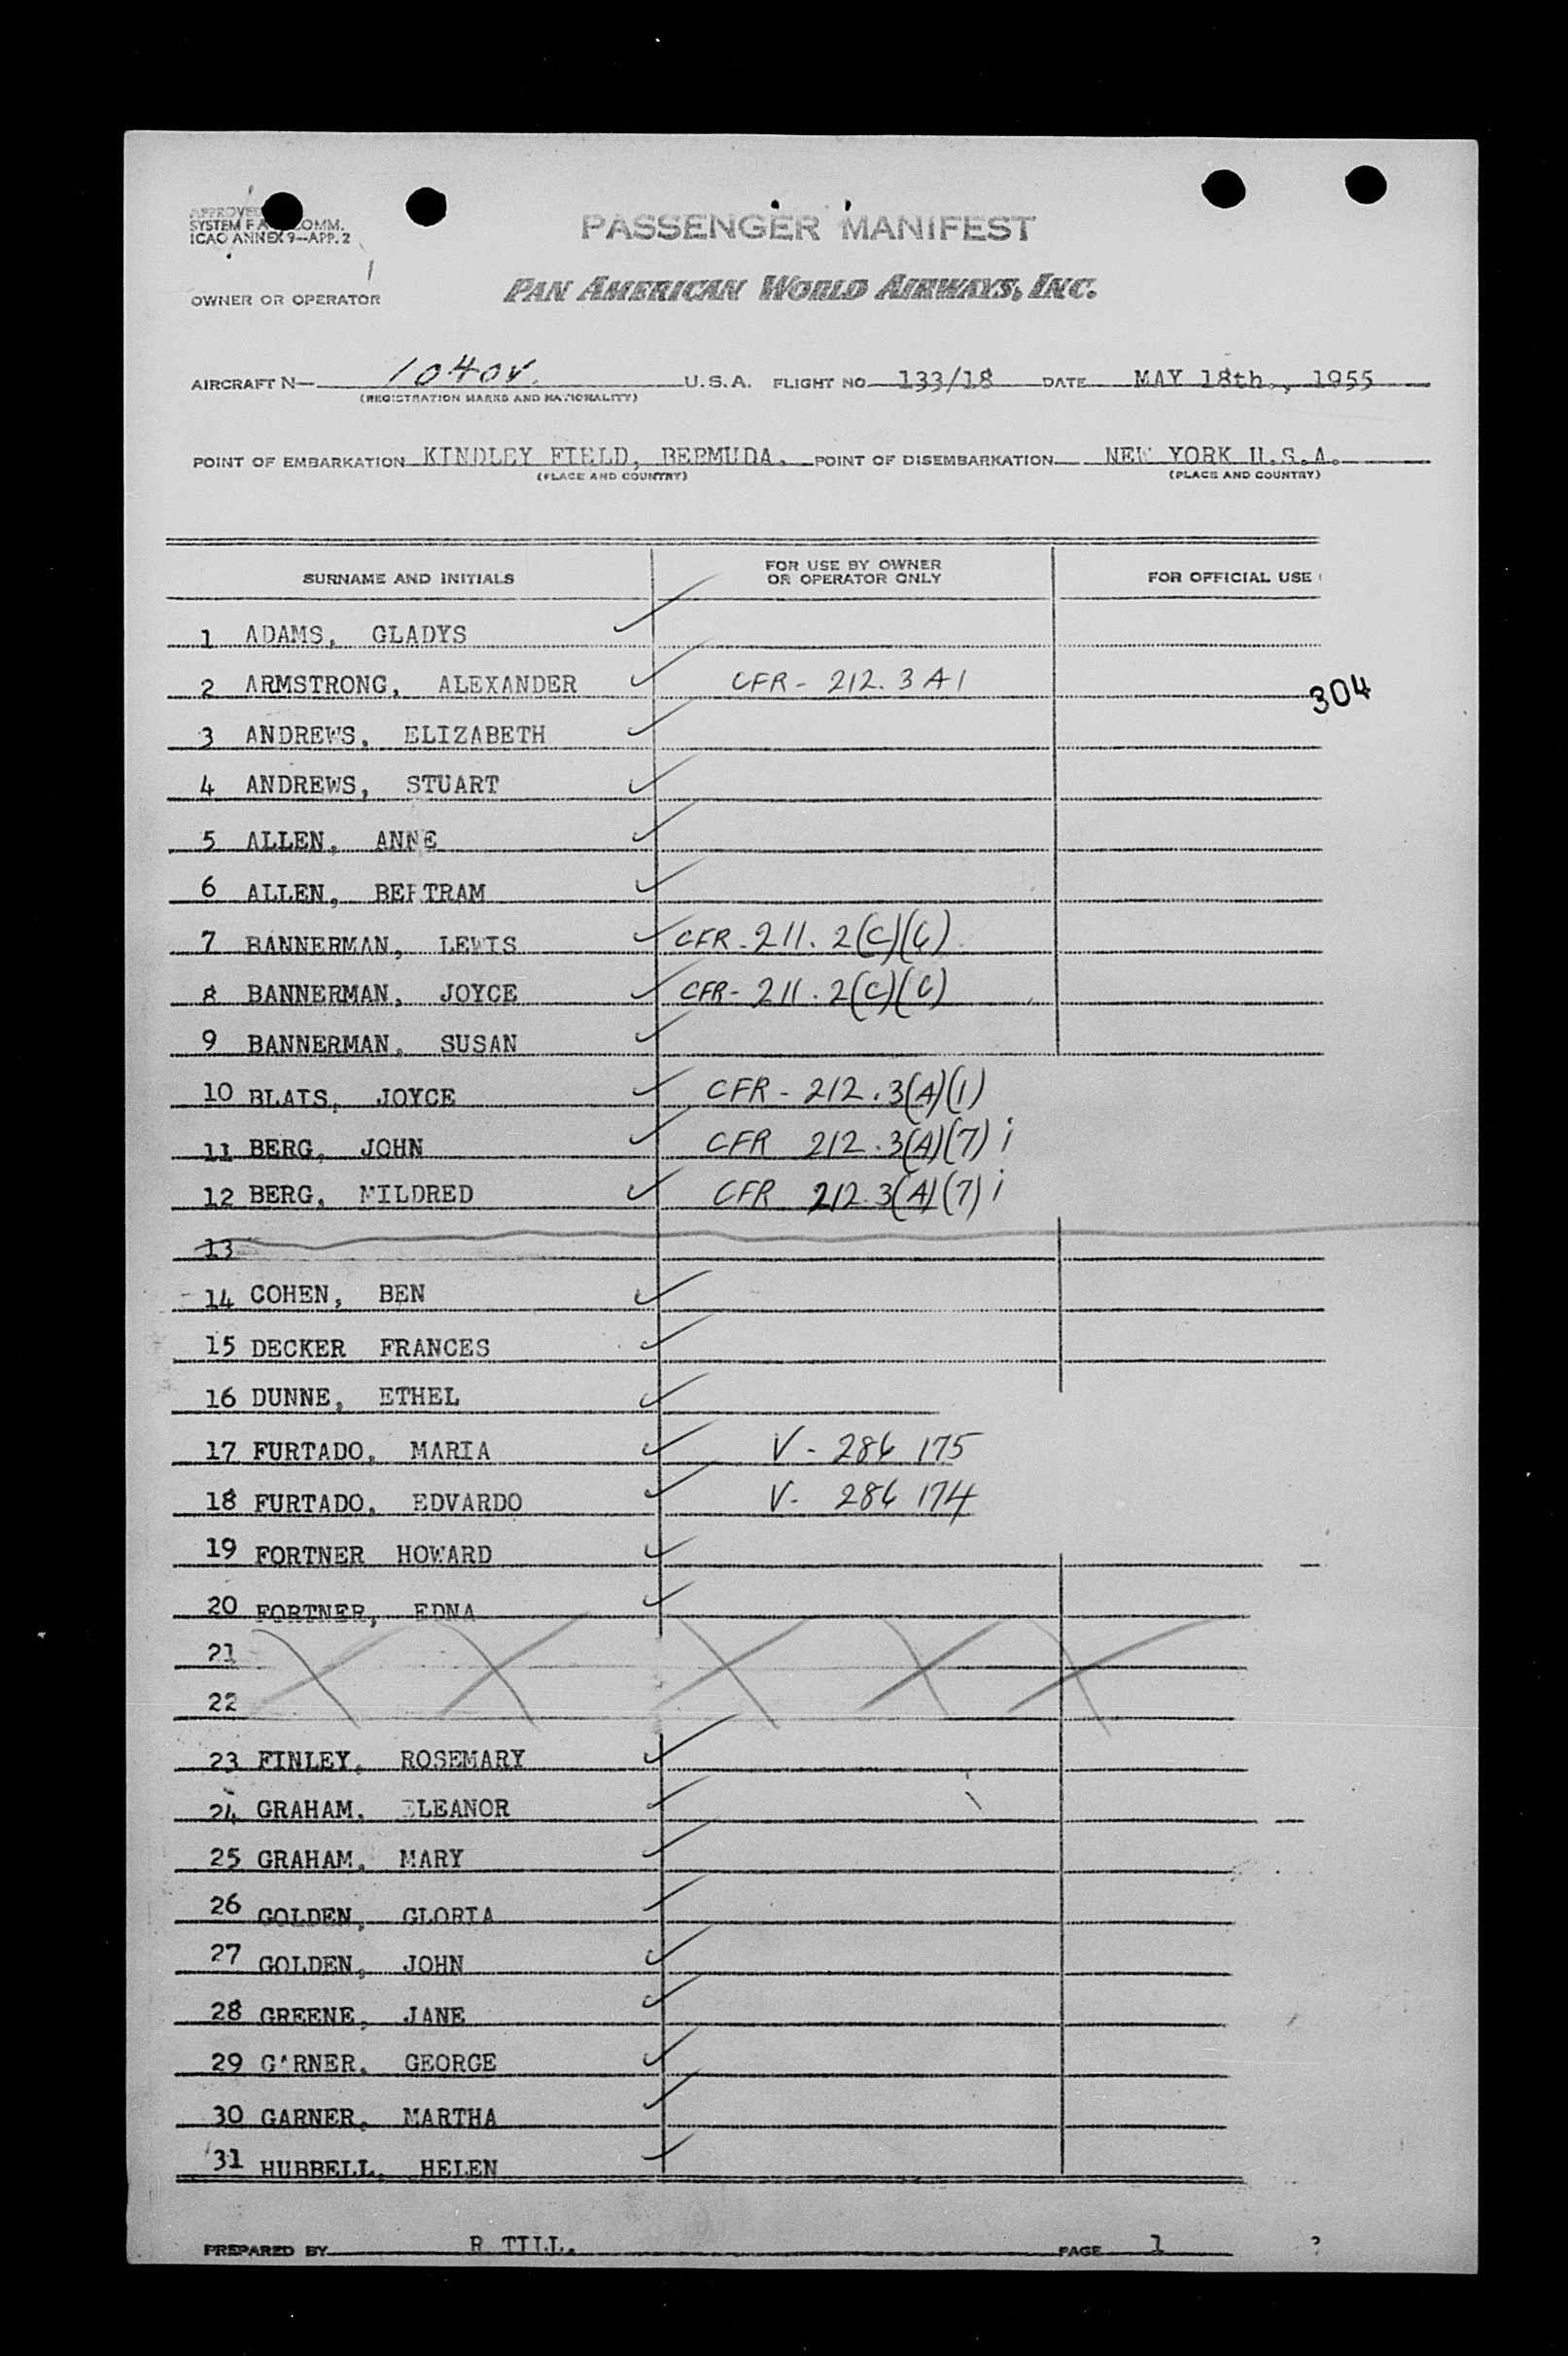 APPROVED
SYSTEM F A COMM.
ICAO ANNEX 9—APP. 2
PASSENGER MANIFEST
OWNER OR OPERATOR
PAN AMERICAN WORLD AIRWAYS, INC.
AIRCRAFT N— 1040V. U.S.A. FLIGHT NO 133/18 DATE MAY 18th., 1955
(REGISTRATION MARKS AND NATIONALITY)
POINT OF EMBARKATION KINDLEY FIELD, BERMUDA. POINT OF DISEMBARKATION NEW YORK U.S.A.
(PLACE AND COUNTRY) (PLACE AND COUNTRY)
SURNAME AND INITIALS FOR USE BY OWNER OR OPERATOR ONLY FOR OFFICIAL USE
1 ADAMS, GLADYS
2 ARMSTRONG, ALEXANDER CFR - 212. 3 A 1
304
3 ANDREWS, ELIZABETH
4 ANDREWS, STUART
5 ALLEN, ANNE
6 ALLEN, BERTRAM
7 BANNERMAN, LEWIS CFR - 211. 2(C)(6)
8 BANNERMAN, JOYCE CFR - 211. 2(C)(6)
9 BANNERMAN, SUSAN
10 BLAIS, JOYCE CFR - 212. 3(A)(1)
11 BERG, JOHN CFR 212. 3(A)(7) i
12 BERG, MILDRED CFR 212. 3(A)(7) i
13
14 COHEN, BEN
15 DECKER FRANCES
16 DUNNE, ETHEL
17 FURTADO, MARIA V - 286 175
18 FURTADO, EDVARDO V - 286 174
19 FORTNER HOWARD
20 FORTNER, EDNA
21
22
23 FINLEY, ROSEMARY
24 GRAHAM, ELEANOR
25 GRAHAM, MARY
26 GOLDEN, GLORIA
27 GOLDEN, JOHN
28 GREENE, JANE
29 GARNER, GEORGE
30 GARNER, MARTHA
31 HUBBELL, HELEN
PREPARED BY R TILL. PAGE 1